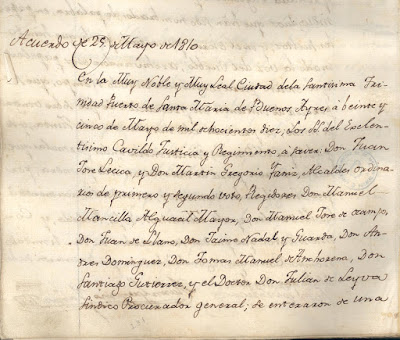 Acuerdo de 25 de Mayo de 1810
En la Muy Noble y Muy Leal Ciudad dela Santissima Tri-
nidad Puerto de Santa Maria de Buenos Ayres à veinte y
cinco de Mayo de mil ochocientos diez, Los SS. del Excelen-
tisimo Cavildo Justicia y Regimiento, á saver: Don Juan
Jose Lecica, y Don Martin Gregorio Yaniz, Alcaldes ordina-
rios de primero y segundo voto, Regidores Don Manuel
Mancilla Alguacil Mayor, Don Manuel Jose de ocampo,
Don Juan de Llano, Don Jaime Nadal y Guarda, Don An-
dres Dominguez, Don Tomas Manuel de Anchorena, Don
Santiago Gutierrez, y el Doctor Don Julian de Leyva
Sindico Procurador general; se enteraron de una